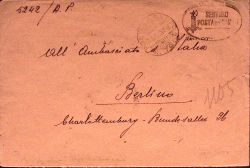 5242/D.P
SERVIZIO
all' Ambasciata d'Italia
Berlino
Charlottenburg - Bundesallee 26
1105